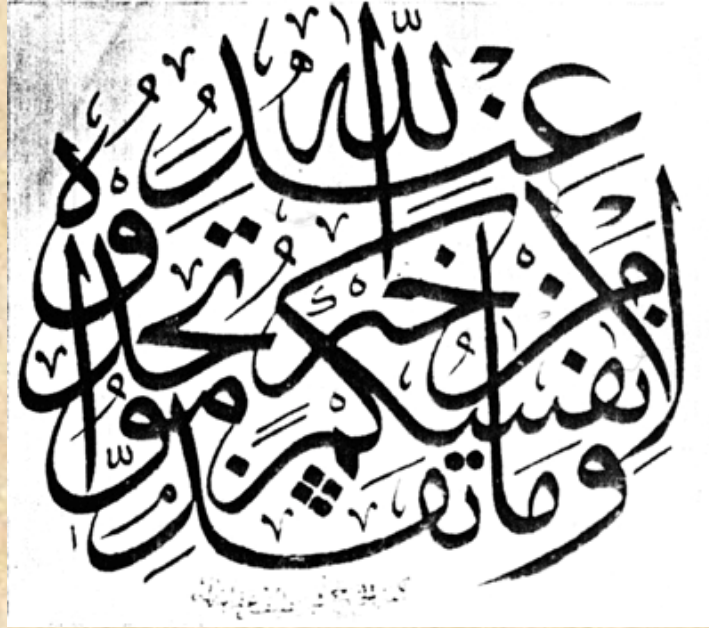 وَمَا تُقَدِّمُوا
لِأَنْفُسِكُمْ مِنْ خَيْرٍ تَجِدُوهُ
عِنْدَ اللّٰهِ